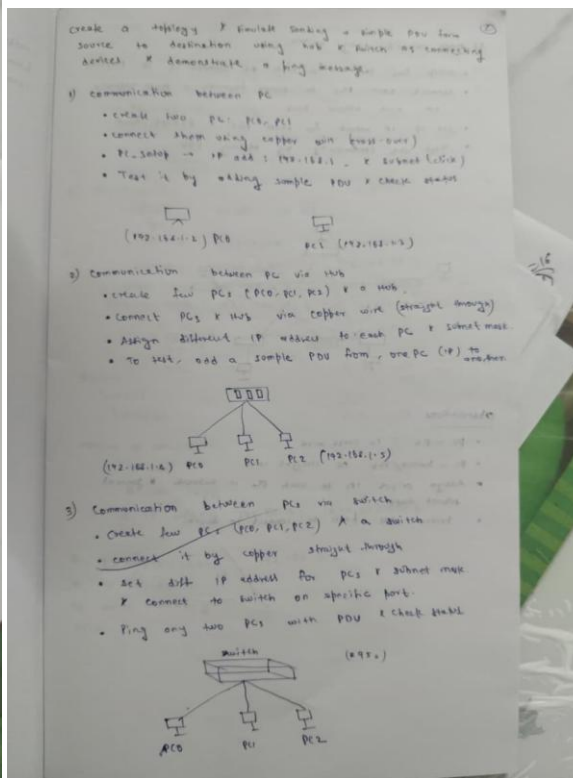 create a topology & simulate sending a simple PDU from
source to destination using hub & switch as connecting
devices & demonstrate a ping message.
1) communication between PC
• create two PC, PC0, PC1
• connect them using copper wire (cross-over)
• PC_setup → IP add : 192.168.1 & subnet (click)
• Test it by adding simple PDU & check status
PC0 PC1
2) communication between PC via Hub
• create few PCs (PC0, PC1, PC2) & a Hub.
• connect PCs & Hub via copper wire (straight through)
• Assign different IP address to each PC & subnet mask
• To test, add a simple PDU from, one PC (IP) to another
PC0 PC1 PC2
3) communication between PCs via switch
• create few PCs (PC0, PC1, PC2) & a switch
• connect it by copper straight through
• set diff IP address for PCs & subnet mask
& connect to switch on specific port.
• Ping any two PCs with PDU & check status
switch
PC0 PC1 PC2